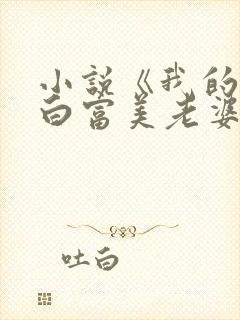 小说《我的
白富美老婆
吐白